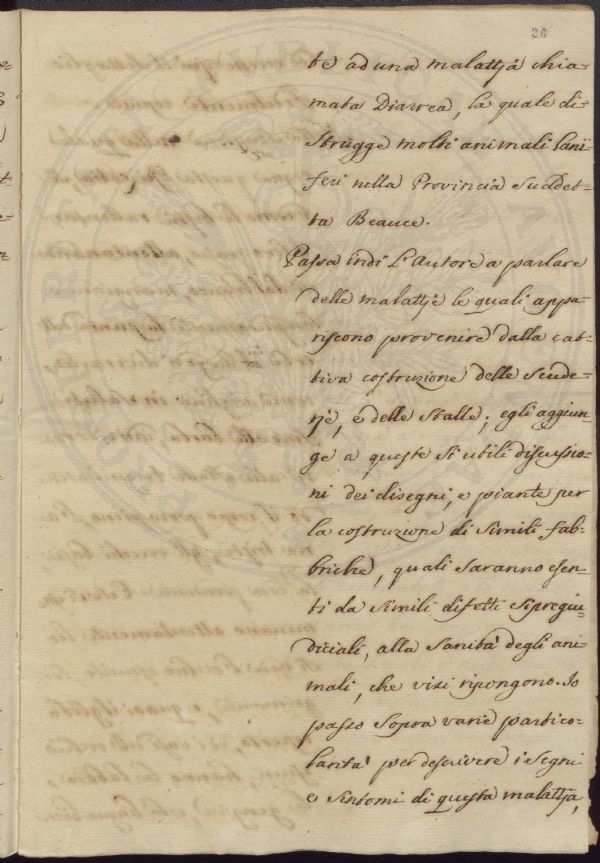 26
te ad una malattja chia-
mata Diarrea, la quale di-
strugge molti animali lani-
feri nella Provincia suddet-
ta Beauce.
Passa indi L'Autore a parlare
delle malattje le quali appa-
riscono provenire dalla cat-
tiva costruzione delle scude-
rje, e delle stalle; egli aggiun-
ge a queste sì utili discussio-
ni dei disegni, e piante per
la costruzione di simili fab-
briche, quali saranno esen-
ti da simili difetti sì pregiu-
diciali, alla sanità degli ani-
mali, che vi si ripongono. Io
passo sopra varie partico-
larità per descrivere i segni
e sintomi di questa malattja,